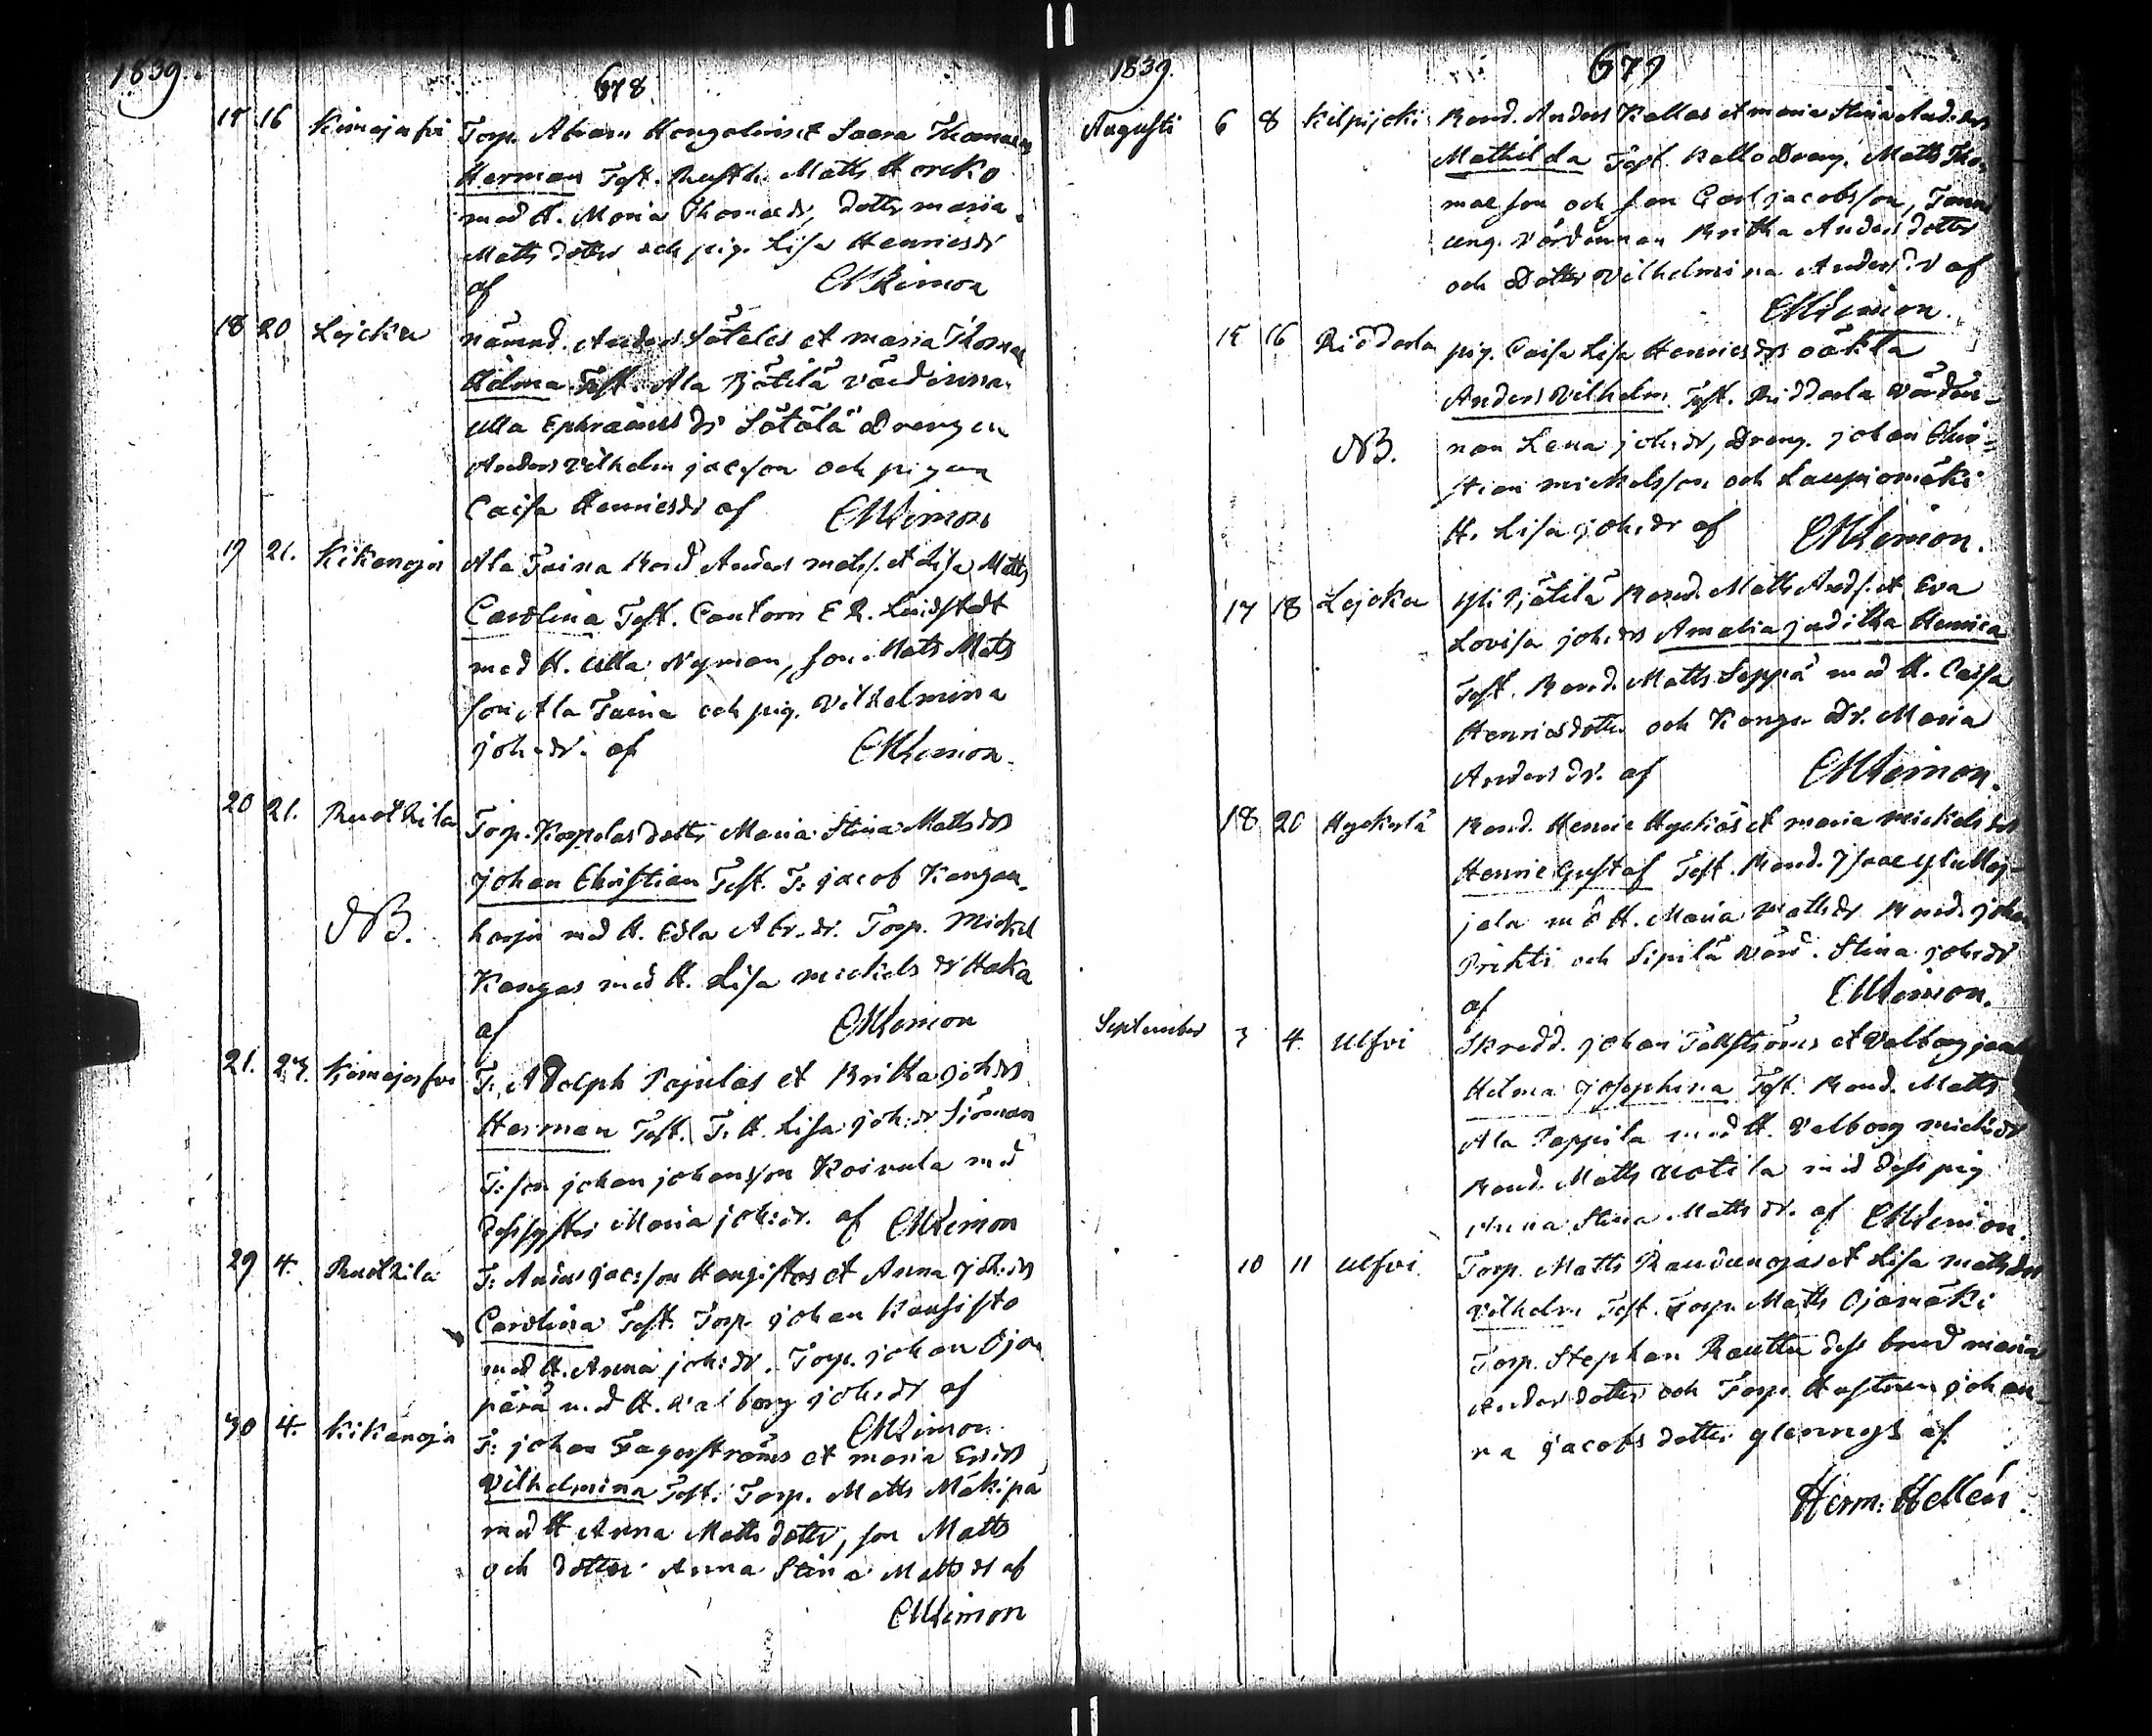 1839.
678.
15 16 Kimajerfvi Torp. Abram Hongolins et Saara Thomaedr
Herman Test. Rusth. Matts Horcko
med H. Maria Thomaedr, dottr maria
Matts dotter och pig. Lisa Henricsdr
af CMLemon
18 20 Lojcku nämnd. Anders Sötales et maria Thomae
Hilma Test. Ala Pjätilä värdinna
Ulla Ephraims dr Sötälä Drengen
Anders Vilhelm jacson och pigan
Caisa Henricsdr af CMLemon
19 21. Kikanoja Ala Taina Bond Anders mats. et Lisa Matts
Carolina Test. Cantorn E R. Lindstedt
med H. Ulla Nyman, son Mats Mats
son Ala Taina och pig. Vilhelmina
joh:dr. af CMLemon.
20 21. Ruotkila Torp. Korpelas dottr Maria Stina Mattsdrs
NB. Johan Christian Test. T: jacob Kangan
harju med H. Edla Abr.dr. Torp. Mickel
Kangas med H. Lisa mickels dr Haka
af CMLemon
21. 23. Kimajerfvi T: Adolph Pajulas et Britha joh:drs
Herman Test. T: H. Lisa joh:dr Sioman
T: son johan johansson Koivula med
dess syster Maria joh:dr. af CMLemon
29 4. Ruotkila T: Anders jac:son Hangistos et Anna joh:drs
Carolina Test. Torp. johan Kausisto
med H. Anna joh:dr. Torp. johan Ojan
pärä med H. Valborg joh:dr af
CMLemon.
30 4. Kikanoja T: johan Fagerströms et maria Ericdrs
Vilhelmina Test. Torp. Matts Mäkipä
med H Anna Matts dotter, son Matts
och dotter Anna Stina Mattsdr af
CMLemon
1839.
679
Augusti 6 8 Kilpijoki Bond. Anders Kallas et maria Stina Andersdrs
Mathilda Test. Kallo Dreng. Matts Tho-
mae son och son Carl jacobsson, Tom
ung. värdinnan Britha Anders dotter
och Dotter Vilhelmina Anders dr af
CMLemon.
15 16 Riddarla pig. Caisa Lisa Henricsdrs oäkta
Anders Vilhelm Test. Riddarla värdin-
NB. nan Lena joh:dr, Dreng. johan Chri-
stian mickelsson och Laupiomäki
H. Lisa joh:dr af CMLemon.
17 18 Lojcku Yli Pjätilä Bond. Matts Ands. et Eva
Lovisa joh:drs Amalia juditha Henrica
Test. Bond. Matts Seppä med H. Caisa
Henricsdotter och Kangu Dr. Maria
Andersdr. af CMLemon.
18 20 Hyckylä Bond. Henric Hyckiös et maria mickelsdrs
Henric Gustaf Test. Bond. Isaac Ylitalo
jala med H. Maria Mattsdr Bond. johan
Prihti och Sipilä värd. Stina joh:dr
af CMLemon.
September 3 4 Ulfvi Skredd. johan Tallströms et Valborg jacob
Hilma josephina Test. Bond. Matts
Ala Pappila med H. Valborg mickdr
Bond. Matts Uotila med dess pig
Anna Stina Mattsdr. af CMLemon.
10 11 Ulfvi Torp. Matts Raudunojas et Lisa mattsdrs
Vilhelm Test. Torp. Matts Ojamäki
Torp. Stephan Rauttu dess brud maria
Anders dotter och Torp. Hustrun johan
na jacobs dotter glennys af
Herm: Hellén.